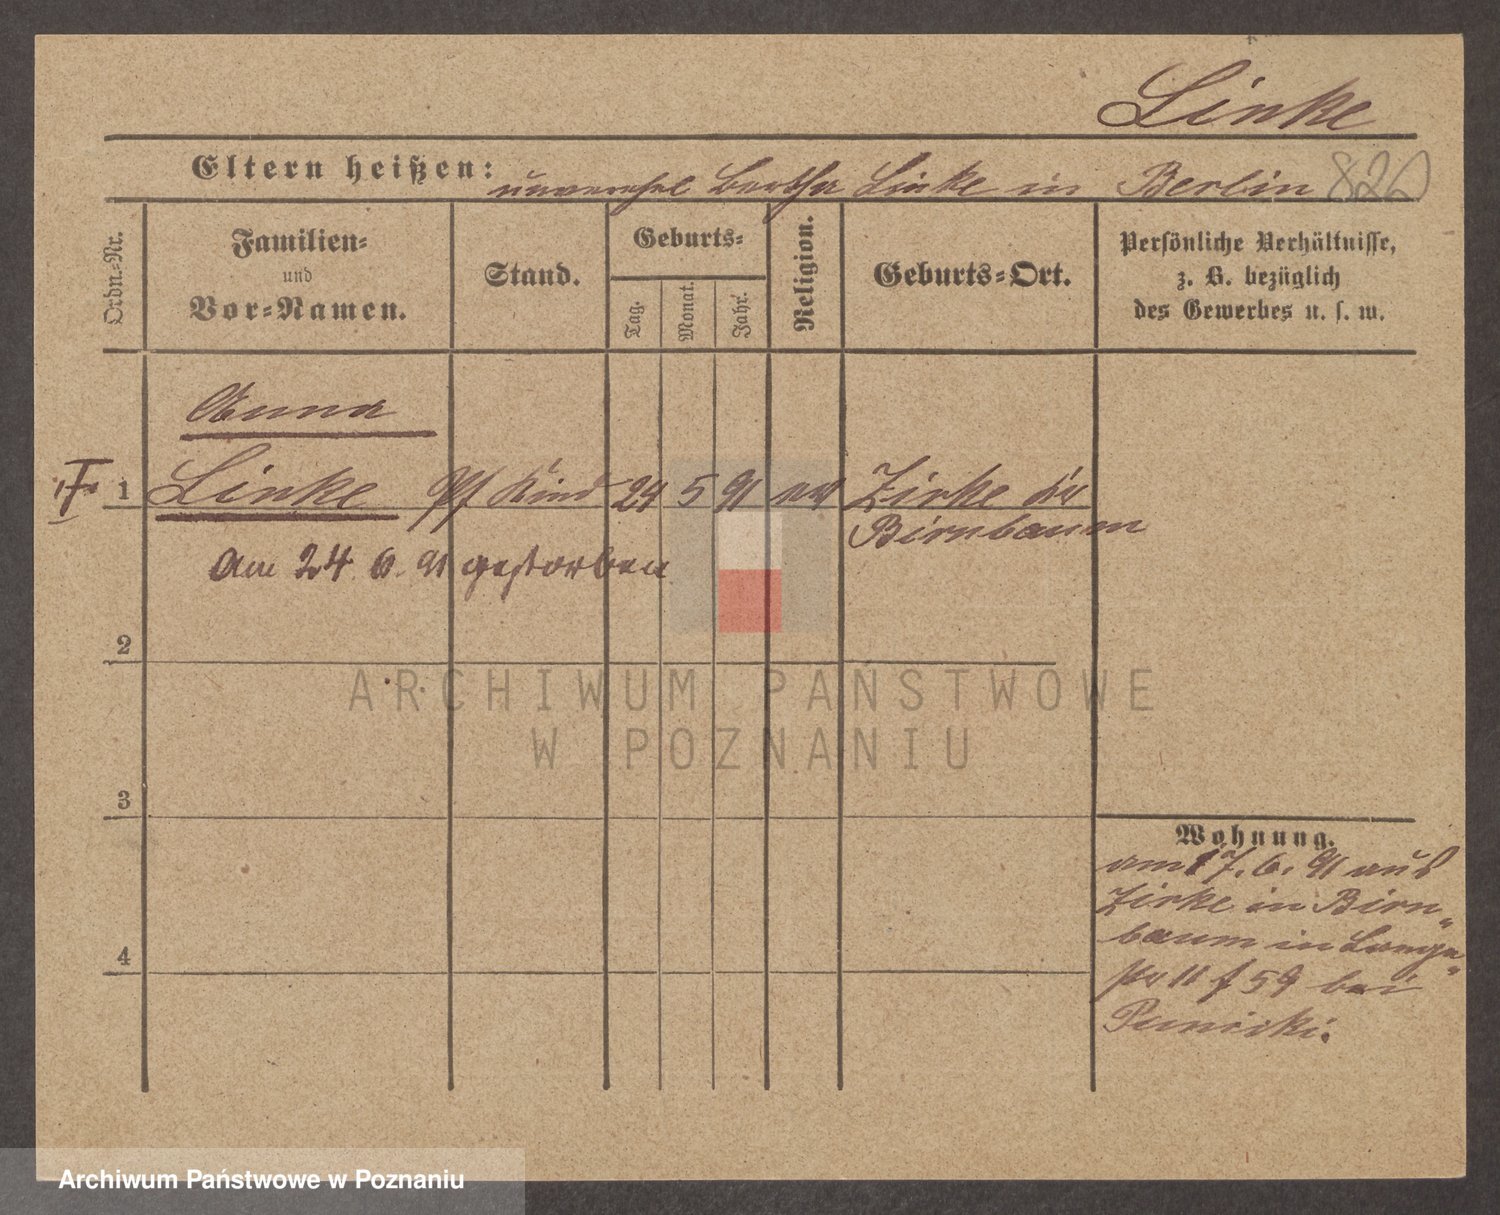 Linke
Eltern heißen: unverehel Bertha Linke in Berlin 820
Ordn.-Nr.
Familien-
und
Vor-Namen.
Stand.
Geburts-
Tag.
Monat.
Jahr.
Religion.
Geburts-Ort.
Persönliche Verhältnisse,
z. B. bezüglich
des Gewerbes u. s. w.
Anna
1 Linke Pf Kind 24 5 91 Zirke Kr
Birnbaum
am 24. 6. 91 gestorben
2
ARCHIWUM PAŃSTWOWE
W POZNANIU
3
Wohnung.
am 17. 6. 91 aus
Zirke in Birn
baum in Lange
str 11 f 59 bei
4
Archiwum Państwowe w Poznaniu